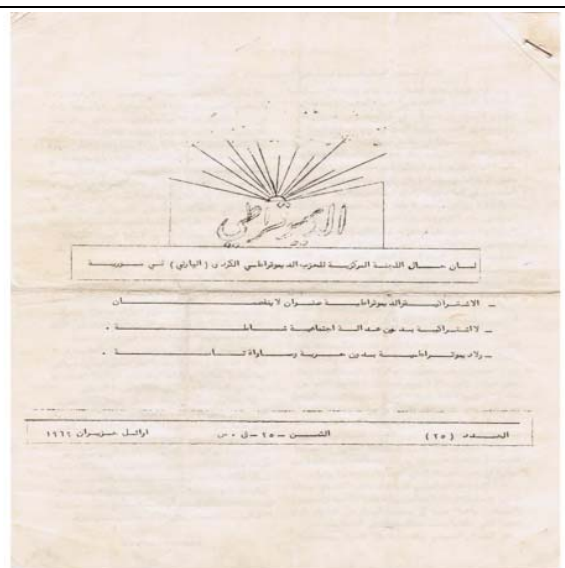 الديموقراطي
لسان حال اللجنة المركزية للحزب الديموقراطي الكردي ( البارتي ) في سورية
ـ الاشتراكية والديموقراطية صنوان لا ينفصلان
ـ لا اشتراكية بدون عدالة اجتماعية شاملة .
ـ ولا ديموقراطية بدون حرية ومساواة تامة .
العدد (٢٥) الثمن ـ ٢٥ ـ ق . س اوائل حزيران